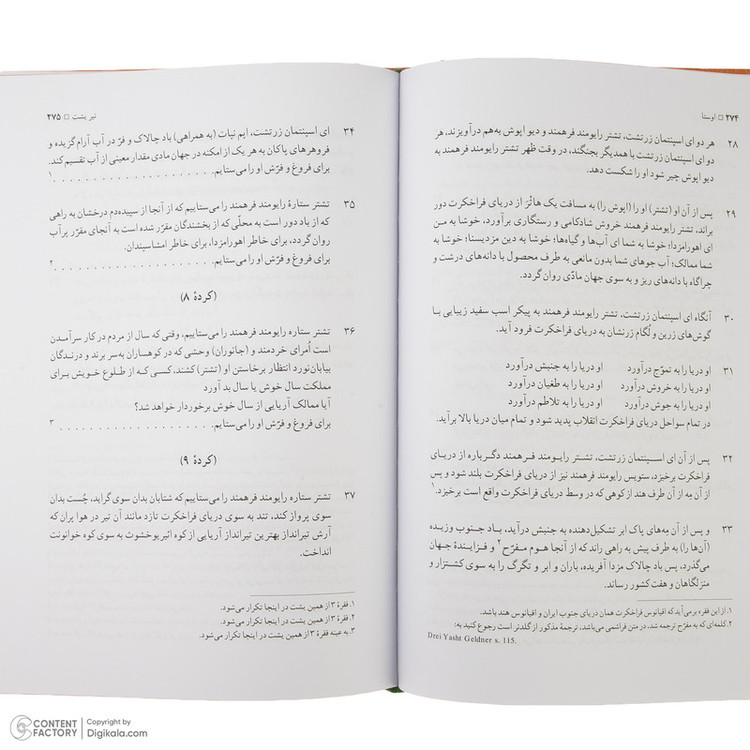 ۲۷۴ □ اوستا
۲۸ هر دو ای اسپنتمان زرتشت، تشتر رایومند فرهمند و دیو اپوش به‌هم درآویزند، هر
دو ای اسپنتمان زرتشت با همدیگر بجنگند، در وقت ظهر تشتر رایومند فرهمند به
دیو اپوش چیر شود او را شکست دهد.
۲۹ پس از آن او (تشتر) او را (اپوش را) به مسافت یک هاثْرَ از دریای فراخکرت دور
براند، تشتر رایومند فرهمند خروش شادکامی و رستگاری برآورد، خوشا به من
ای اهورامزدا؛ خوشا به شما ای آب‌ها و گیاه‌ها؛ خوشا به دین مزدیسنا؛ خوشا به
شما ممالک؛ آب جوهای شما بدون مانعی به طرف محصول با دانه‌های درشت و
چراگاه با دانه‌های ریز و به سوی جهان مادّی روان گردد.
۳۰ آنگاه ای اسپنتمان زرتشت، تشتر رایومند فرهمند به پیکر اسب سفید زیبایی با
گوش‌های زرین و لُگام زرنشان به دریای فراخکرت فرود آید.
۳۱ او دریا را به تموّج درآورد او دریا را به جنبش درآورد
او دریا را به خروش درآورد او دریا را به طغیان درآورد
او دریا را به جوش درآورد او دریا را به تلاطم درآورد
در تمام سواحل دریای فراخکرت انقلاب پدید شود و تمام میان دریا بالا برآید.
۳۲ پس از آن ای اسپنتمان زرتشت، تشتر رایومند فرهمند دگرباره از دریای
فراخکرت برخیزد، ستویس رایومند فرهمند نیز از دریای فراخکرت بلند شود و پس
از آن مِه از آن طرف هند از کوهی که در وسط دریای فراخکرت واقع است برخیزد.۱
۳۳ و پس از آن مِه‌های پاک ابر تشکیل‌دهنده به جنبش درآید، باد جنوب وزیده
(آن‌ها را) به طرف پیش به راهی راند که از آنجا هوم مفرّح۲ و فزایندهٔ جهان
می‌گذرد، پس باد چالاک مزدا آفریده، باران و ابر و تگرگ را به سوی کشتزار و
منزلگاهان و هفت‌کشور رساند.
۱. از این فقره برمی‌آید که اقیانوس فراخکرت همان دریای جنوب ایران و اقیانوس هند باشد.
۲. کلمه‌ای که به مفرّح ترجمه شد، در متن فراشمی می‌باشد، ترجمهٔ مذکور از گلدنر است رجوع کنید به:
Drei Yasht Geldner s. 115.
تیر یشت □ ۲۷۵
۳۴ ای اسپنتمان زرتشت، اپم نپات (به همراهی) باد چالاک و فرّ در آب آرام گزیده و
فروهرهای پاکان به هر یک از امکنه در جهان مادی مقدار معینی از آب تقسیم کند.
برای فروغ و فرّش او را می‌ستایم. . . . . . . . . . . . . . . . . . . . . . ۱
۳۵ تشتر ستارهٔ رایومند فرهمند را می‌ستاییم که از آنجا از سپیده‌دم درخشان به راهی
که از باد دور است به محلّی که از بخشندگان مقرّر شده است به آنجای مقرّر پرآب
روان گردد، برای خاطر اهورامزدا، برای خاطر امشاسپندان.
برای فروغ و فرّش او را می‌ستایم. . . . . . . . . . . . . . . . . . . . . . ۲
(کردهٔ ۸)
۳۶ تشتر ستاره رایومند فرهمند را می‌ستاییم، وقتی که سال از مردم در کار سرآمدن
است اُمرای خردمند و (جانوران) وحشی که در کوهساران به‌سر برند و درندگان
بیابان‌نورد انتظار برخاستن او (تشتر) کشند، کسی که از طلوع خویش برای
مملکت سال خوش یا سال بد آورد
آیا ممالک آریایی از سال خوش برخوردار خواهد شد؟
برای فروغ و فرّش او را می‌ستایم. . . . . . . . . . . . . . . . . . . . . . ۳
(کردهٔ ۹)
۳۷ تشتر ستاره رایومند فرهمند را می‌ستاییم که شتابان بدان سوی گراید، چُست بدان
سوی پرواز کند، تند به سوی دریای فراخکرت تازد مانند آن تیر در هوا پران که
آرش تیرانداز بهترین تیرانداز آریایی از کوه ائیریوخشوث به سوی کوه خوانونت
انداخت.
۱. فقرهٔ ۳ از همین یشت در اینجا تکرار می‌شود.
۲. فقرهٔ ۳ از همین یشت در اینجا تکرار می‌شود.
۳. به عینه فقرهٔ ۳ از همین یشت در اینجا تکرار می‌شود.
CONTENT FACTORY
Copyright by
Digikala.com